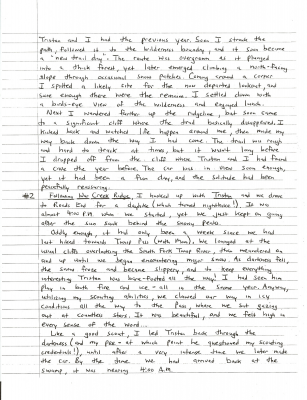 Tristan and I had the previous year. Soon I struck the
path, followed it to the wilderness boundary, and it soon became
a "new trail day". The route was overgrown as it plunged
into a thick forest, yet later emerged climbing a north-facing
slope through occasional snow patches. Coming around a corner
I spotted a likely site for the now departed lookout, and
sure enough there were the remains. I settled down with
a birds-eye view of the wilderness and enjoyed lunch.
Next I wandered further up the ridgeline, but soon came
to a significant cliff where the trail basically disappeared. I
kicked back and watched life happen around me, then made my
way back down the way I had come. The trail was rough
and hard to track at times, but it wasn't long before
I dropped off from the cliff where Tristan and I had found
a cave the year before. The car was in view soon enough,
yet it had been a fun day, and the solitude had been
peacefully reassuring.
#2 Following Creek Ridge, I hooked up with Tristan and we drove
to Roads End for a daylike (which turned nighthike!). It was
almost 4:00 P.M. when we started, yet we just kept on going
after the sun sunk behind the snowy peaks.
Oddly enough, it had only been a week since we had
last hiked towards Pass (with Mom). We lounged at the
usual cliffs overlooking the South Fork River, then meandered on
and up until we began encountering major snow. As darkness fell,
the snow froze and became slippery, and to keep everything
interesting Tristan was bare-footed all the way! I had seen him
play in both fire and ice - all in the same year. Anyway,
utilizing my scouting abilities, we clawed our way in icy
conditions all the way to the Pass, where we sat gazing
out at countless stars. It was beautiful, and we felt high in
every sense of the word...
Like a good scout, I led Tristan back through the
darkness (and my pee - at which point he questioned my scouting
credentials!), until after a very intense time we later made
the car. By the time we had arrived back at the
swamp, it was nearing 4:00 A.M.